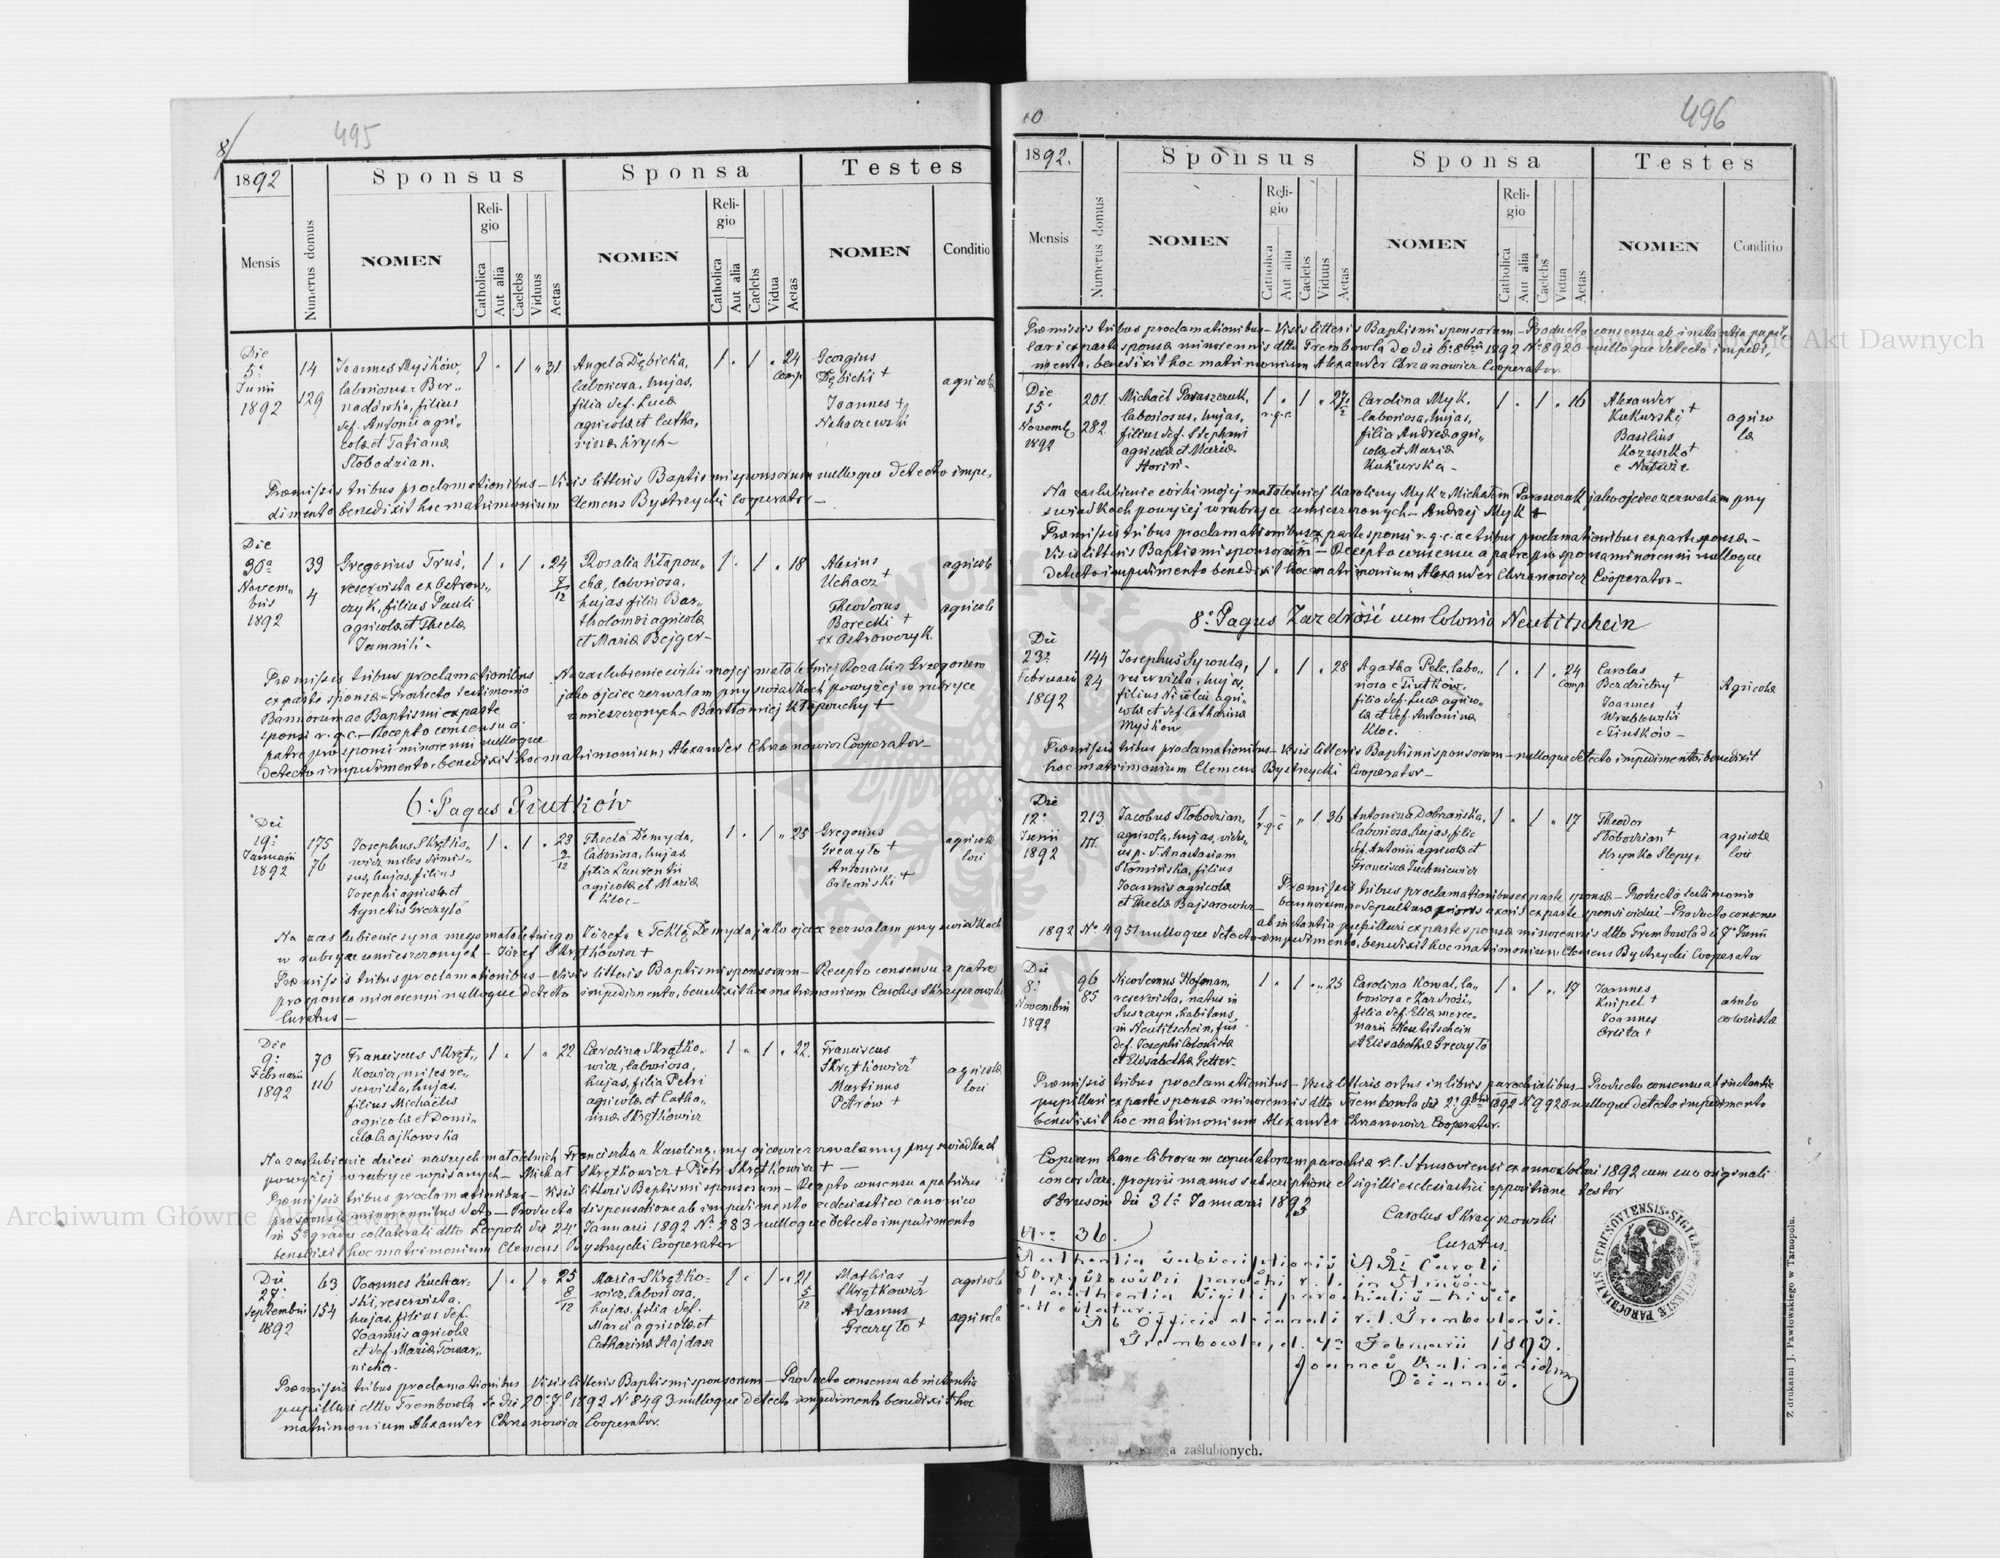 8/
495
1892
Sponsus
Sponsa
Testes
Mensis
Numerus domus
NOMEN
Religio
Catholica
Aut alia
Caelebs
Viduus
Aetas
NOMEN
Religio
Catholica
Aut alia
Caelebs
Vidua
Aetas
NOMEN
Conditio
Die
5a
Junii
1892
14
129
Joannes Myśków,
laboriosus e Ber„
nadówka, filius
def. Antonii agri„
colæ et Tatianæ
Słobodzian.
1 „ 1 „ 31
Angela Dębicka,
laboriosa, hujas,
filia def. Lucæ
agricolæ et Catha„
rinæ Krych –
1 „ 1 „ 24
comp
Georgius
Dębicki +
Joannes +
Nahorzewski
agricolæ
Præmissis tribus proclamationibus – Visis litteris Baptismi sponsorum nulloque detecto impe„
dimento benedixit hoc matrimonium Clemens Bystrzycki Cooperator –
Die
30a
Novem„
bris
1892
39
4
Gregorius Truś,
reservista ex Ostrow„
czyk, filius Pauli
agricolæ et Theclæ
Jamnik –
1 „ 1 „ 24
7/12
Rosalia Kłapou„
cha, laboriosa,
hujas filia Bar„
tholomæi agricolæ
et Mariæ Bejger –
1 „ 1 „ 18
Alexius
Uchacz +
Theodorus
Borecki +
ex Ostrowczyk.
agricola
agricola
Præmissis tribus proclamationibus
ex parte sponsæ – Producto testimonio
Bannorum ac Baptismi ex parte
sponsi r. g. c. – Recepto consensu a
patre pro sponsi minorenni nulloque
detecto impedimento benedixit hoc matrimonium Alexander Chrzanowicz Cooperator –
Na zaślubienie córki mojej małoletniej Rozalii z Grzegorzem
jako ojciec zezwalam przy świadkach powyżej w rubryce
umieszczonych – Bartłomiej Kłapouchy +
6: Pagus Tiutków
Die
19a
Januarii
1892
175
76
Josephus Skrętko„
wicz, miles dimis„
sus, hujas, filius
Josephi agricolæ et
Agnetis Greczyło
1 „ 1 „ 23
9/12
Thecla Demyda,
laboriosa, hujas,
filia Laurentii
agricolæ et Mariæ
Kloc –
1 „ 1 „ 25
Gregorius
Greczyło +
Antonius
Orleański +
agricolæ
loci
Na zaślubienie syna mego małoletniego Józefa z Teklą Demyda jako ojciec zezwalam przy świadkach
w rubryce umieszczonych – Józef Skrętkowicz +
Præmissis tribus proclamationibus – Visis litteris Baptismi sponsorum – Recepto consensu a patre
pro sponso minorenni nulloque detecto impedimento, benedixit hoc matrimonium Carolus Skrzyszowski
Curatus –
Die
9a
Februarii
1892
70
116
Franciscus Skręt„
kowicz, miles re„
servista, hujas,
filius Michaelis
agricolæ et Domi„
celæ Czajkowska
1 „ 1 „ 22
Carolina Skrętko„
wicz, laboriosa,
hujas, filia Petri
agricolæ et Catha„
rinæ Skrętkowicz
1 „ 1 „ 22.
Franciscus
Skrętkowicz +
Martinus
Petrów +
agricolæ
loci
Na zaślubienie dzieci naszych małoletnich Franciszka z Karoliną, my ojcowie zezwalamy przy świadkach
powyżej w rubryce wpisanych – Michał Skrętkowicz + Piotr Skrętkowicz + –
Præmissis tribus proclamationibus – Visis litteris Baptismi sponsorum – Recepto consensu a patribus
pro sponsis minorennibus dato – Producta dispensatione ab impedimento ecclesiastico canonico
in 3o gradu collaterali dtto Leopoli die 24 Januarii 1892 No 283 nulloque detecto impedimento
benedixit hoc matrimonium Clemens Bystrzycki Cooperator
Die
27a
Septembris
1892
63
154
Joannes Kuchar„
ski, reservista,
hujas, filius def.
Joannis agricolæ
et def. Mariæ Towar„
nicka –
1 „ 1 „ 25
8/12
Maria Skrętko„
wicz, laboriosa,
hujas, filia def.
Marci agricolæ et
Catharinæ Hajdasz
1 „ 1 „ 21
5/12
Mathias +
Skrętkowicz
Adamus
Greczyło +
agricola
agricola
Præmissis tribus proclamationibus – Visis litteris Baptismi sponsorum – Producto consensu ab instantia
pupillari dtto Trembowla de die 20 7. 1892 N 8493 nulloque detecto impedimento benedixit hoc
matrimonium Alexander Chrzanowicz Cooperator.
10
496
1892.
Sponsus
Sponsa
Testes
Mensis
Numerus domus
NOMEN
Religio
Catholica
Aut alia
Caelebs
Viduus
Aetas
NOMEN
Religio
Catholica
Aut alia
Caelebs
Vidua
Aetas
NOMEN
Conditio
Præmissis tribus proclamationibus – Visis litteris Baptismi sponsorum – Producto consensu ab instantia pupil„
lari ex parte sponsæ minorennis dtto Trembowla de die 6. 8bris 1892 No 8920 nulloque detecto impedi„
mento, benedixit hoc matrimonium Alexander Chrzanowicz Cooperator
Die
15a
Novemb.
1892
201.
282
Michael Paraszczuk,
laboriosus, hujas,
filius def. Stephani
agricolæ et Mariæ
Horin –
1 „ 1 „ 27
r. g. c.
Carolina Myk,
laboriosa, hujas,
filia Andreæ agri„
colæ et Mariæ
Kukurska –
1 „ 1 „ 16
Alexander
Kukurski +
Basilius
Kozuszko +
e Nałuże
agrico
læ
Na zaślubienie córki mojej małoletniej Karoliny Myk z Michałem Paraszczuk jako ojciec zezwalam przy
świadkach powyżej w rubryce umieszczonych – Andrzej Myk +
Præmissis tribus proclamationibus ex parte sponsi r. g. c. ac tribus proclamationibus ex parte sponsæ –
Visis litteris Baptismi sponsorum – Recepto consensu a patre pro sponsa minorenni nulloque
detecto impedimento benedixit hoc matrimonium Alexander Chrzanowicz Cooperator –
8: Pagus Zazdrość cum Colonia Neutitschein
Die
23a
Februarii
1892
144
24
Josephus Syroula,
reservista, hujas,
filius Nicolai agri„
colæ et def. Catharinæ
Myśków
1 „ 1 „ 28
Agatha Pelc, labo„
riosa e Tiutków,
filia def. Lucæ agrico„
læ et def. Antoninæ
Kloc.
1 „ 1 „ 24
comp
Carolus
Bezdzietny +
Joannes +
Wróblowski
e Tiutków –
Agricolæ
Præmissis tribus proclamationibus – Visis litteris Baptismi sponsorum – nulloque detecto impedimento, benedixit
hoc matrimonium Clemens Bystrzycki Cooperator –
Die
12a
Junii
1892
213
Jacobus Słobodzian,
agricola, hujas, vidu„
us p. d. Anastasiam
Słomińska, filius
Joannis agricolæ
et Theclæ Bajsarowicz –
1 „ „ 1 36
r. g. c
Antonina Dobrzańska,
laboriosa, hujas, filia
def. Antonii agricolæ et
Franciscæ Juchniewicz
1 „ 1 „ 17
Theodor
Słobodzian +
Hrynko Slepy +
agricolæ
loci
Præmissis tribus proclamationibus ex parte sponsæ – Producto testimonio
bannorum ac Sepulturæ prioris uxoris ex parte sponsi vidui – Producto consensu
ab instantia pupillari ex parte sponsæ minorennis dtto Trembowla die 7a Junii
1892 No 4951 nulloque detecto impedimento, benedixit hoc matrimonium Clemens Bystrzycki Cooperator
Die
8a
Novembris
1892
96
85
Nicodemus Hofman,
reservista, natus in
Suszczyn, habitans
in Neutitschein, filius
def. Josephi colonistæ
et Elisabethæ Getter –
1 „ 1 „ 23
Carolina Kowal, la„
boriosa e Zazdrość,
filia def. Eliæ merce„
narii e Neutitschein
et Elisabethæ Greczyło
1 „ 1 „ 17
Joannes
Knipel +
Joannes
Orlita +
ambo
colonistæ
Præmissis tribus proclamationibus – Visis litteris ortus in libris parochialibus – Producto consensu ab instantia
pupillari ex parte sponsæ minorennis dtto Trembowla die 2: 9bris 1892 N 9920 nulloque detecto impedimento
benedixit hoc matrimonium Alexander Chrzanowicz Cooperator.
Copiam hanc librorum copulatorum parochiæ r. l. Strusoviensi ex anno solari 1892 cum suo originali
concordare, proprii manus subscriptione et sigilli ecclesiastici appositione testor
Strusów die 31a Januarii 1893
Carolus Skrzyszowski
Curatus.
Nro 36.
Authentia subscriptionis ADi Caroli
Skrzyszowski parochi r. l. in Strusów
et authentia sigilli parochialis – hisce
attestatur.
Ab Officio decanali r. l. Trembovlensi.
Trembowla, d. 4a Februarii 1893.
Decanus.
Z drukarni J. Pawłowskiego w Tarnopolu.
zaślubionych.
Archiwum Główne Akt Dawnych
Archiwum Główne Akt Dawnych